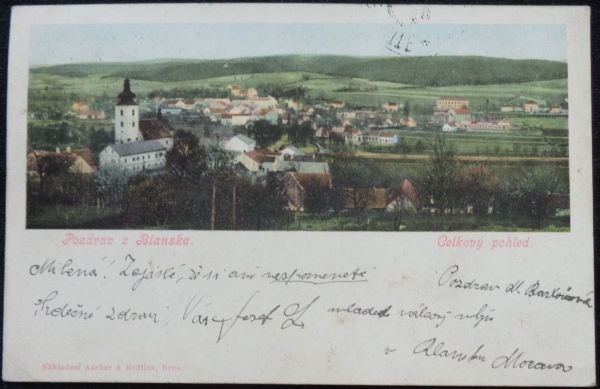 Pozdrav z Blanska.
Celkový pohled.
Milená! Zajisté, že si ani nespomenete
Srdečně zdraví Váš Josef L.
Pozdrav M. Bartošová
mladed
v Blansku Morava
Nákladem Ascher & Redlich, Brno.